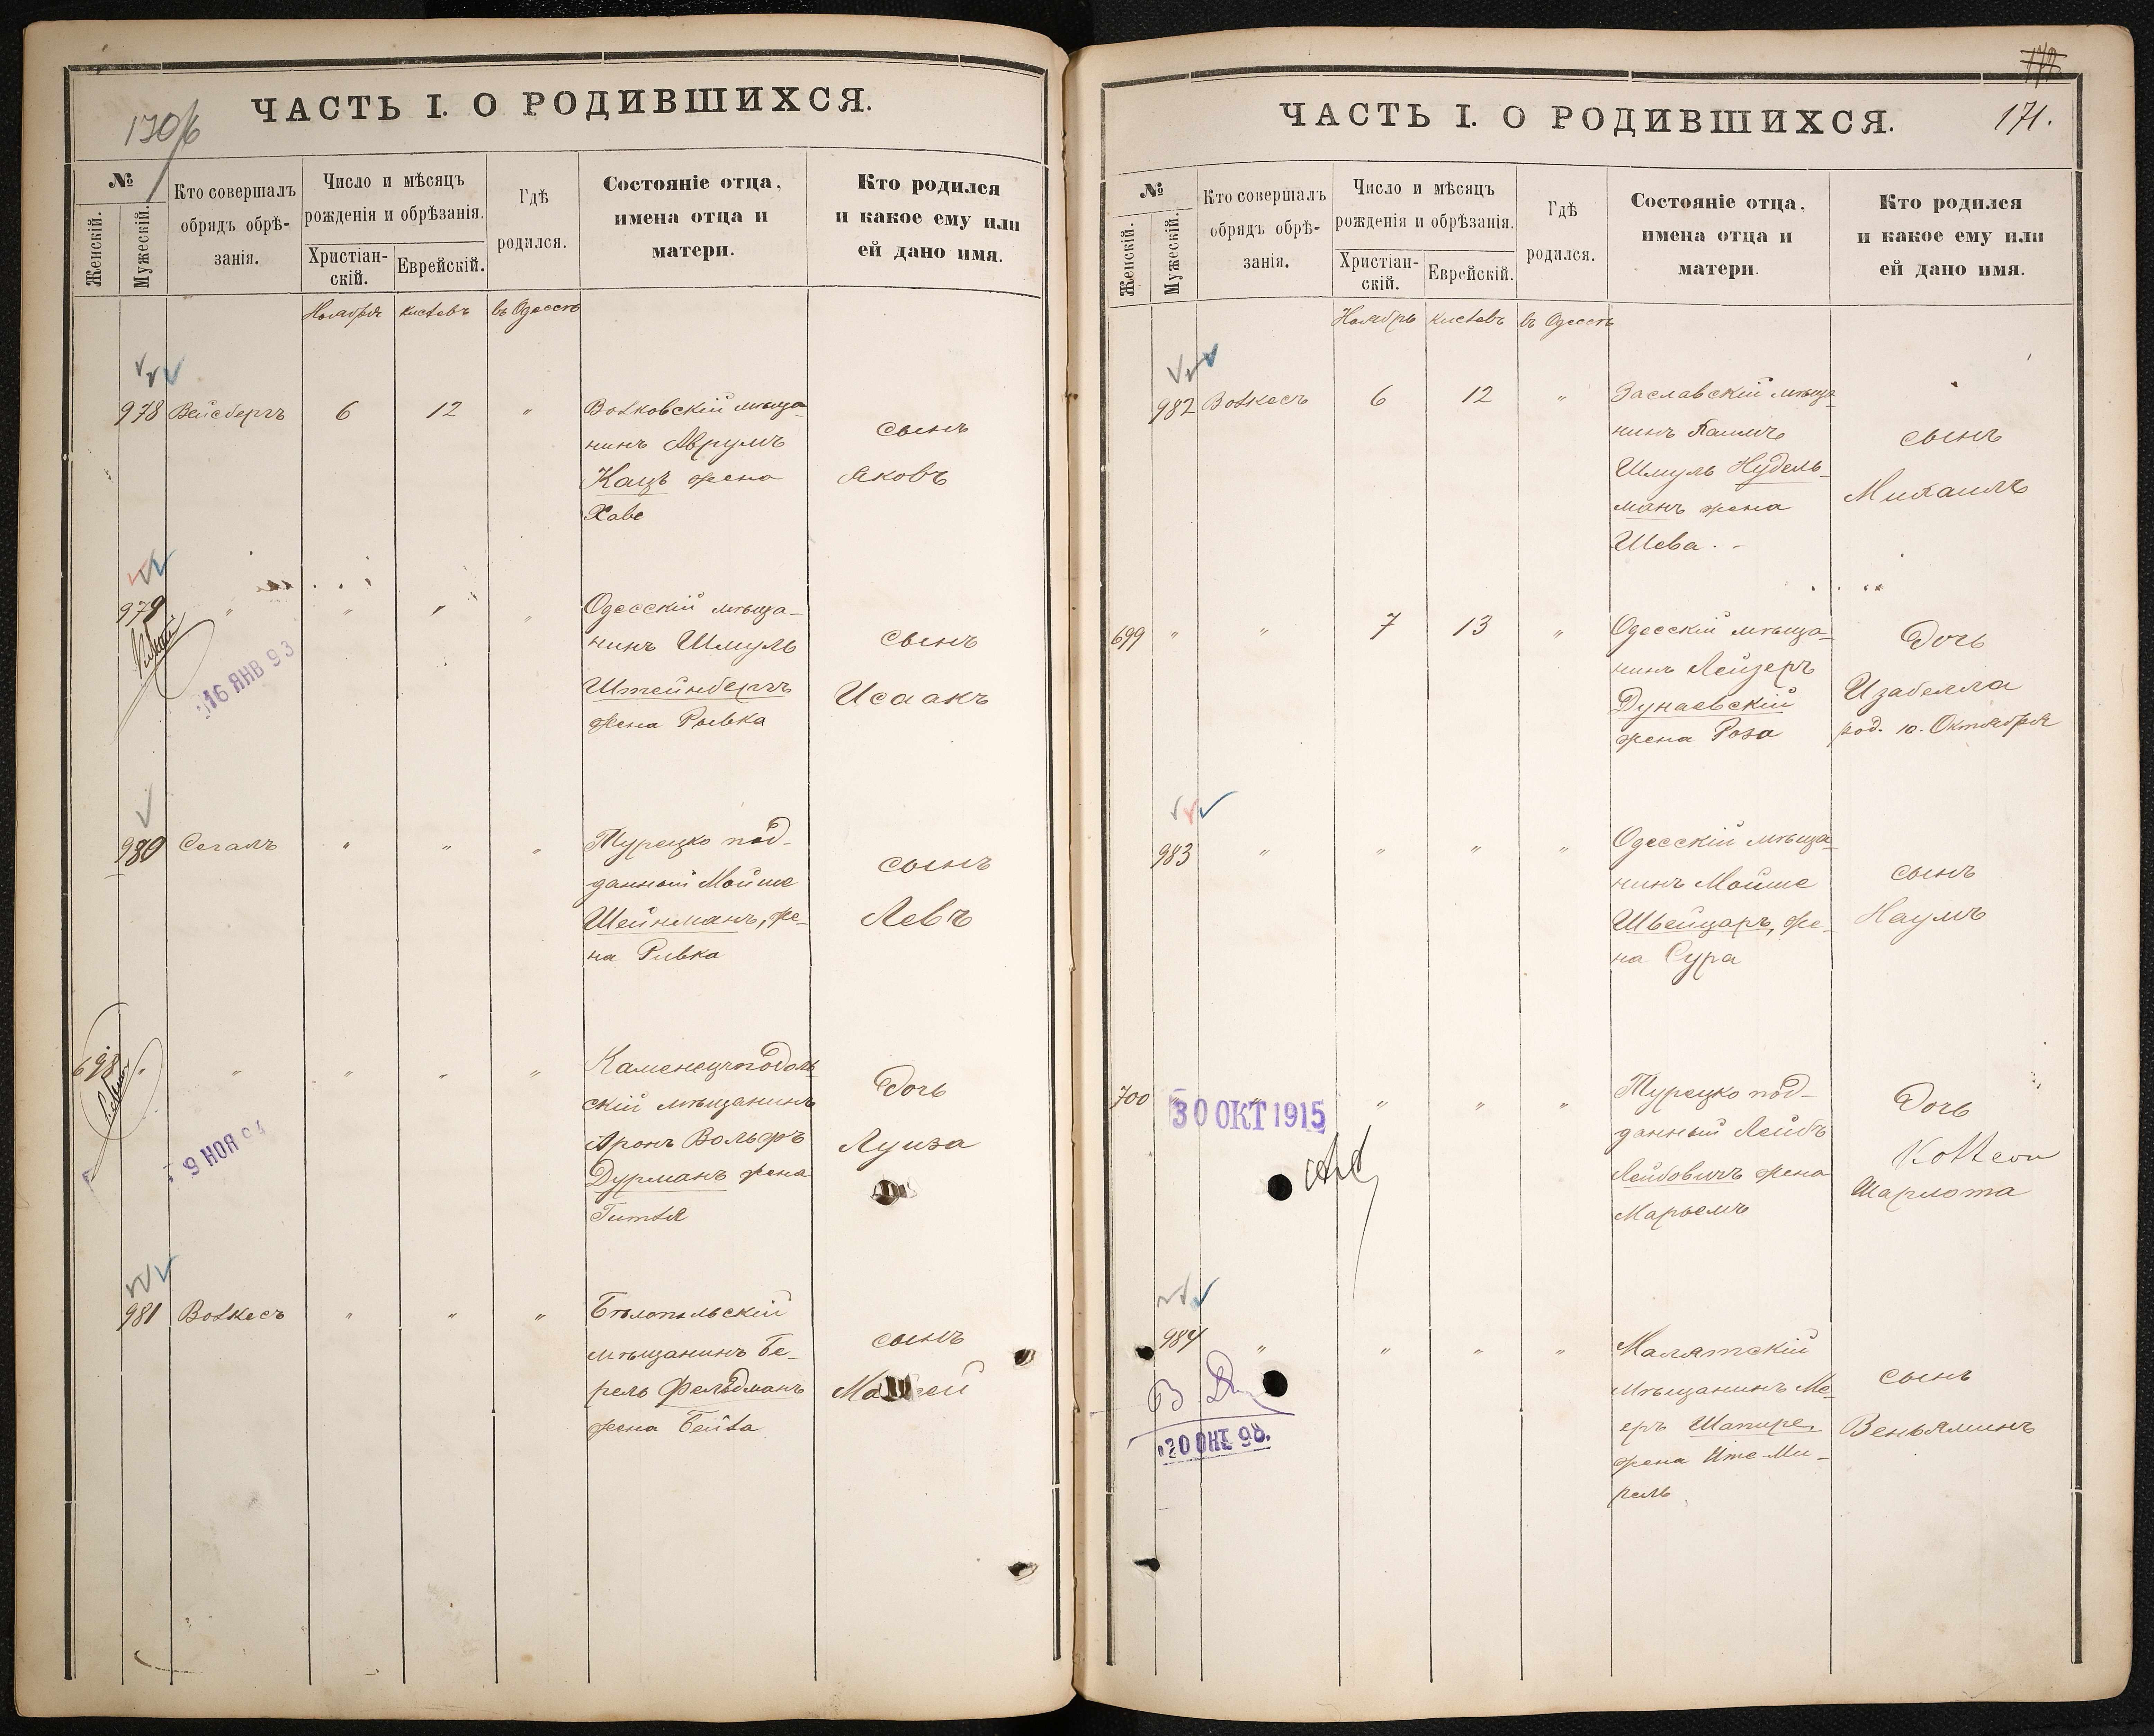 170/б
ЧАСТЬ I. О РОДИВШИХСЯ.
№
Женскій.
Мужескій.
Кто совершалъ
обрядъ обрѣ-
занія.
Число и мѣсяцъ
рожденія и обрѣзанія.
Христіан-
скій.
Еврейскій.
Гдѣ
родился.
Состояніе отца,
имена отца и
матери.
Кто родился
и какое ему или
ей дано имя.
Ноября кислевъ въ Одессѣ
978 Вейсбергъ 6 12 "
Волковскій мѣща-
нинъ Аврумъ
Кацъ жена
Хаве
сынъ
Яковъ
979 " " " "
16 ЯНВ 93
Одесскій мѣща-
нинъ Шмуль
Штейнбергъ
жена Рывка
сынъ
Исаакъ
980 Сегалъ " " "
Турецко под-
данный Мойше
Шейнманъ, же-
на Ривка
сынъ
Левъ
698 " " " " "
9 НОЯ 94
Каменецъ подоль
скій мѣщанинъ
Аронъ Вольфъ
Дурманъ жена
Гитля
Дочь
Луиза
981 Волкесъ " " "
Бѣлопольскій
мѣщанинъ Бе-
рель Фельдманъ
жена Бейла
сынъ
171.
ЧАСТЬ I. О РОДИВШИХСЯ.
№
Женскій.
Мужескій.
Кто совершалъ
обрядъ обрѣ-
занія.
Число и мѣсяцъ
рожденія и обрѣзанія.
Христіан-
скій.
Еврейскій.
Гдѣ
родился.
Состояніе отца,
имена отца и
матери.
Кто родился
и какое ему или
ей дано имя.
Ноябрь кислевъ въ Одессѣ
982 Волкесъ 6 12 "
Заславскій мѣща-
нинъ Хаимъ
Шмуль Нудель-
манъ жена
Шева. -
сынъ
Михаилъ
699 " " 7 13 "
Одесскій мѣща-
нинъ Лейзеръ
Дунаевскій
жена Роза
Дочь
Изабелла
род. 10. Октября
983 " " " "
Одесскій мѣща-
нинъ Мойше
Швейцаръ, же-
на Сура
сынъ
Наумъ
700 " " " " "
30 ОКТ 1915
Турецко под-
данный Лейбъ
Лейбовичъ жена
Марьемъ
Дочь
Шарлота
984 " " " "
Малятскій
мѣщанинъ Ме-
еръ Шапире,
жена Ите Ми-
рель
сынъ
Веньяминъ